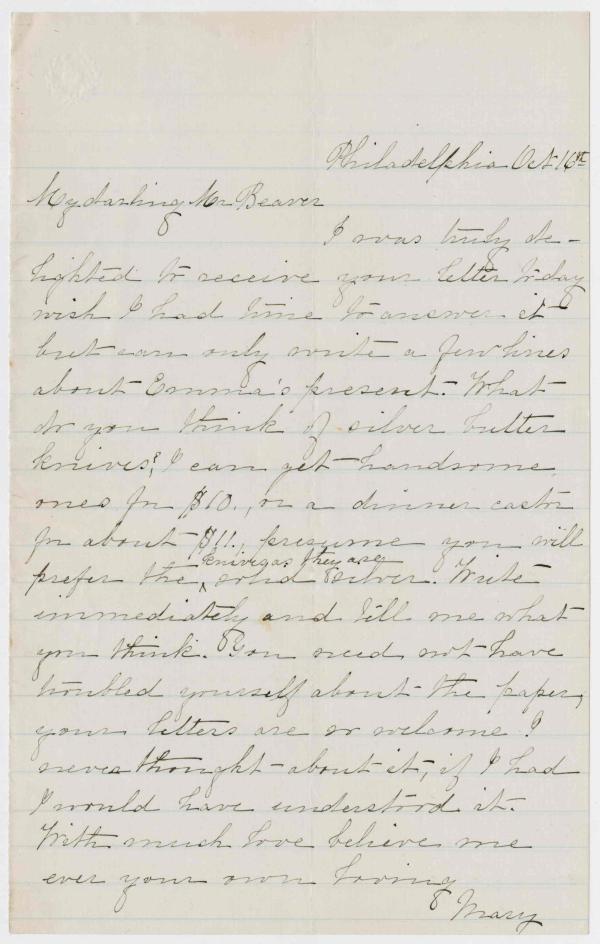 Philadelphia Oct 16th
My darling Mr Beaver
I was truly de-
lighted to receive your letter today
wish I had time to answer it
but can only write a few lines
about Emma's present. What
do you think of silver butter
knives? I can get handsome
ones for $10., or a dinner castor
for about $11., presume you will
knives as they are
prefer the ^ solid silver. Write
immediately and tell me what
you think. You need not have
troubled yourself about the paper,
your letters are so welcome I
never thought about it, if I had
I would have understood it.
With much love believe me
ever your own loving
Mary